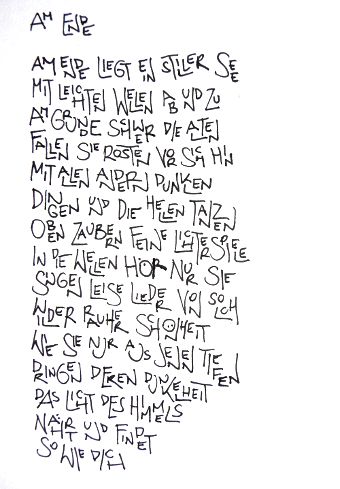 AM ENDE
AM ENDE LIEGT EIN STILLER SEE
MIT LEICHTEN WELLEN AB UND ZU
AM GRUNDE SCHWER DIE ALTEN
FALLEN SIE ROSTEN VOR SICH HIN
MIT ALLEN ANDERN DUNKLEN
DINGEN UND DIE HELLEN TANZEN
OBEN ZAUBERN FEINE LICHTERSPIELE
IN DIE WELLEN HÖR NUR SIE
SINGEN LEISE LIEDER VON SOLCH
WILDER RAUHER SCHÖNHEIT
WIE SIE NUR AUS JENEN TIEFEN
DRINGEN DEREN DUNKELHEIT
DAS LICHT DES HIMMELS
NÄHRT UND FINDET
SO WIE DICH